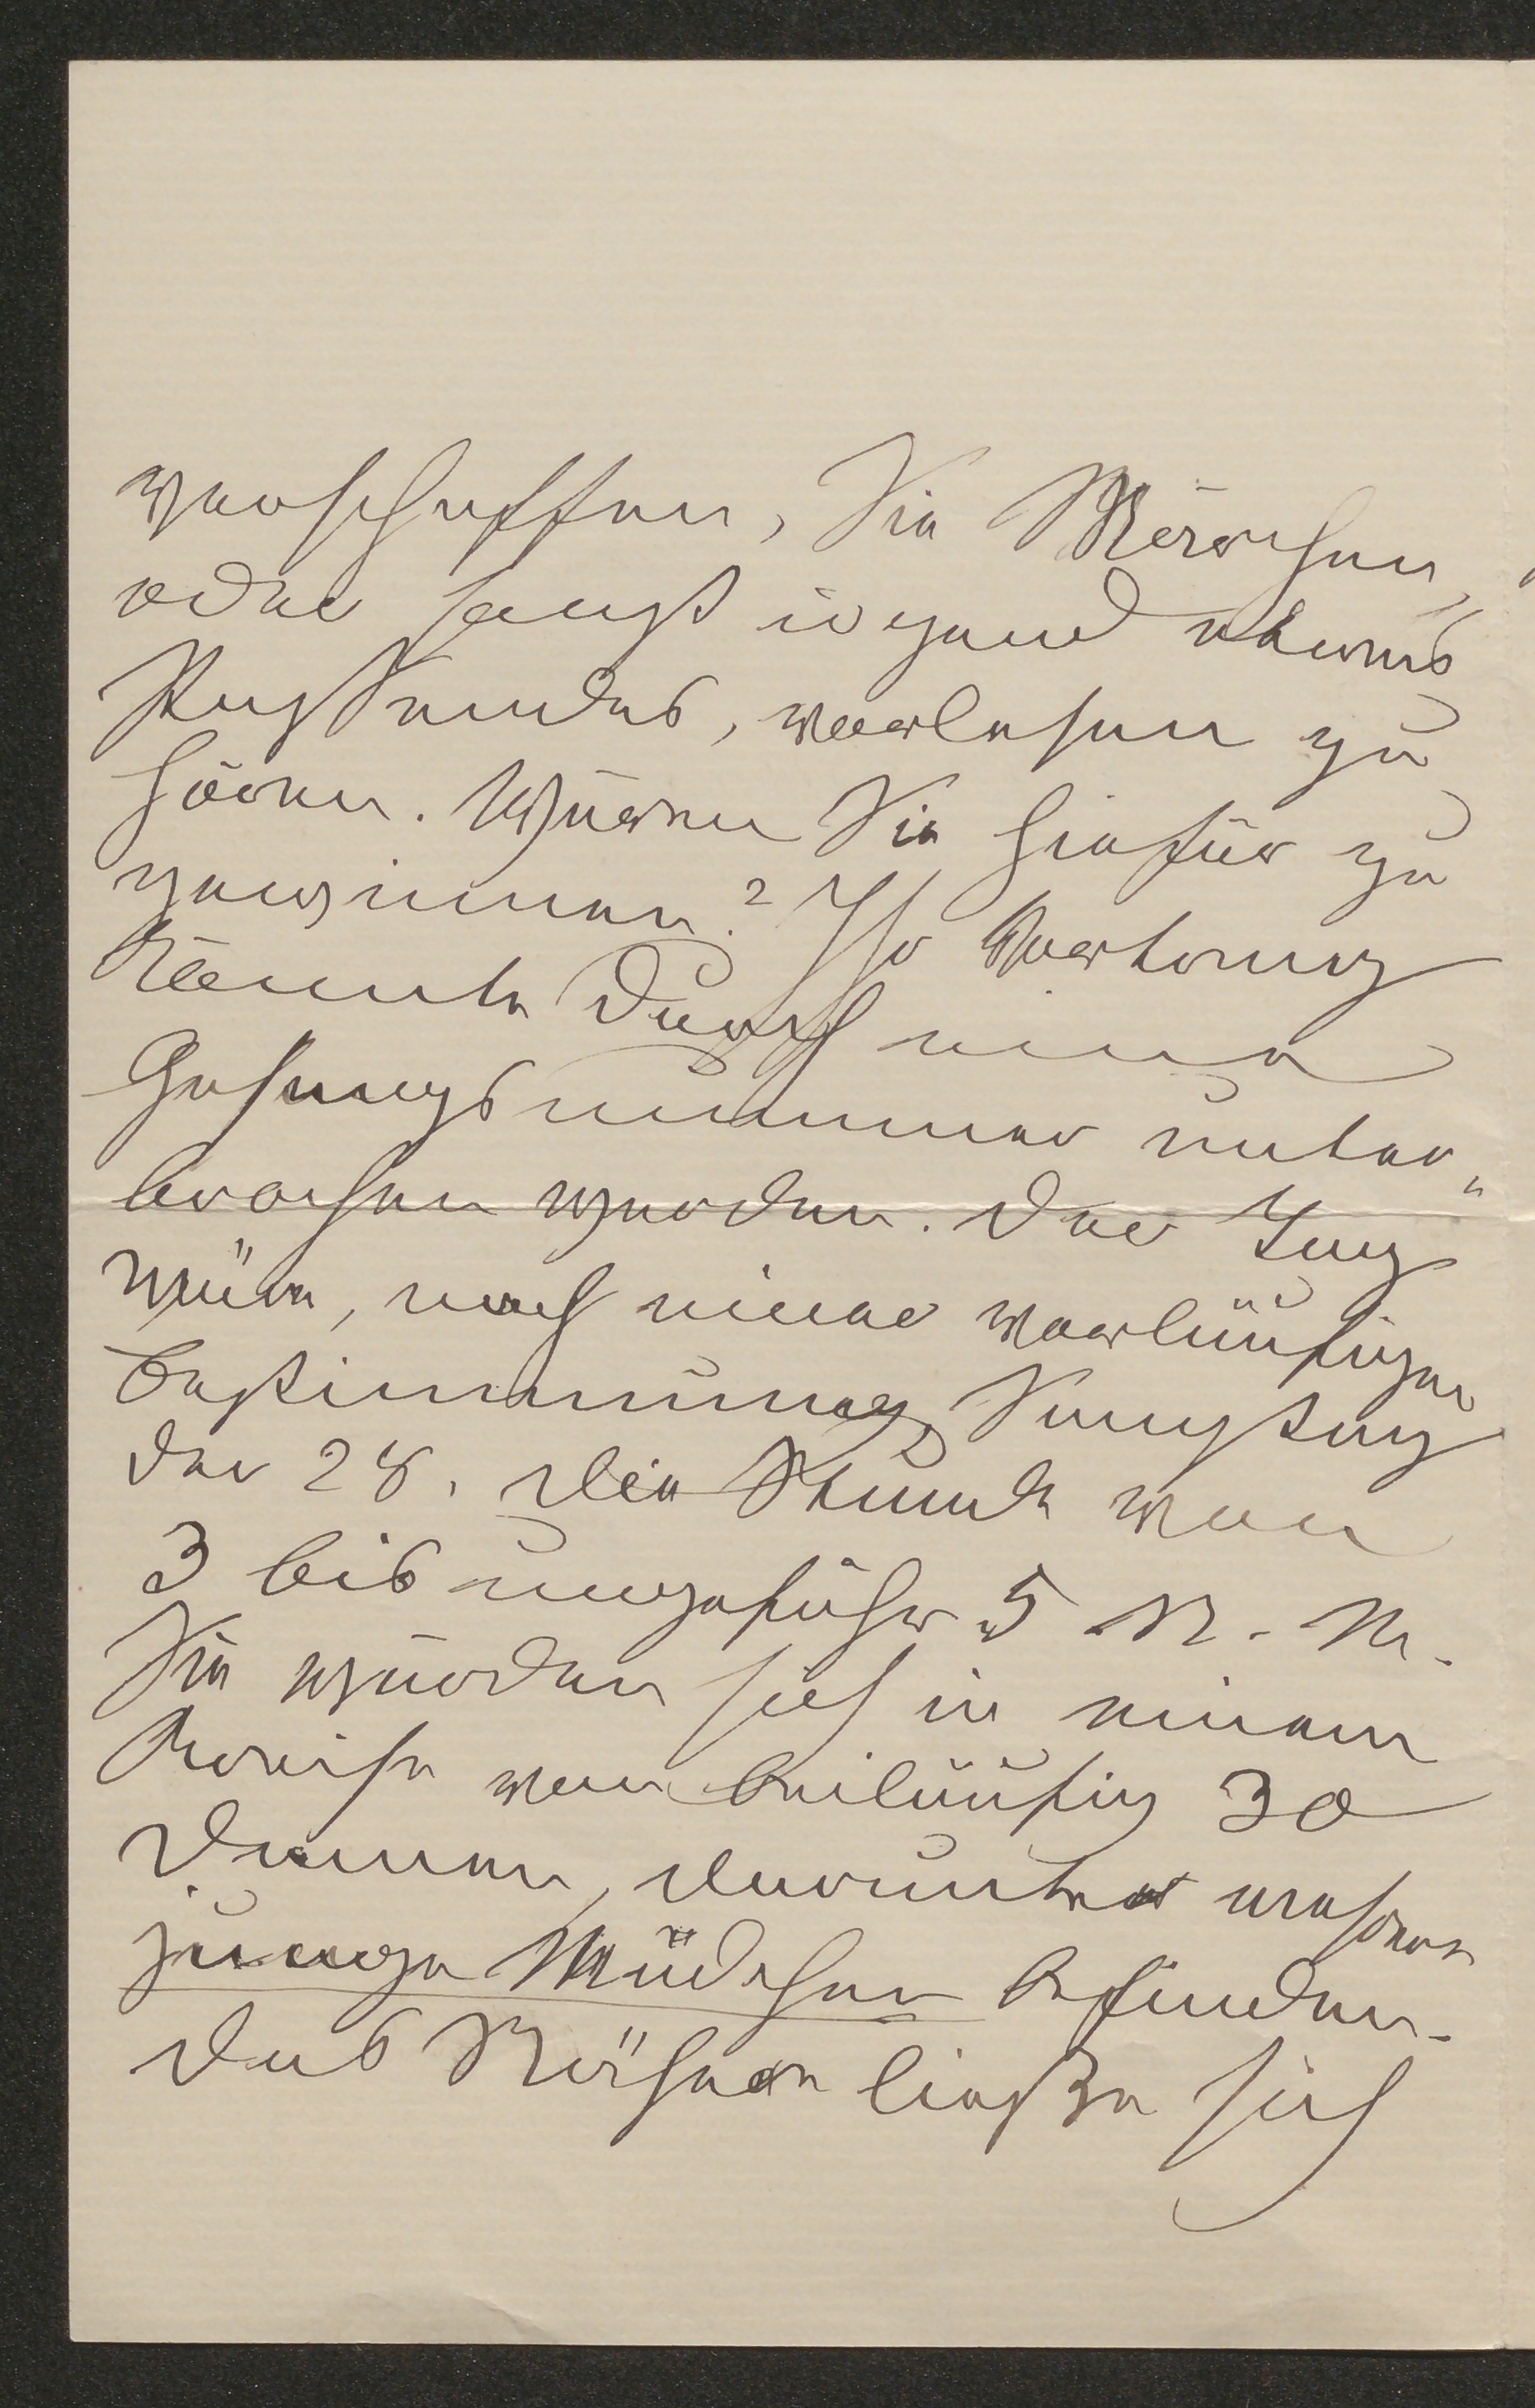 verschaffen, Sie Märchen,
oder sonst irgend etwas
Passendes, vorlesen zu
hören. Wären Sie hiefür zu
gewinnen? Ihr Vortrag
könnte durch eine
Gesangsnummer unter„
brochen werden. Der Tag
wäre, nach einer vorläufigen
Bestimmung, Samstag
der 28. die Stunde von
3 bis ungefähr 5 N. M.
Sie würden sich in einem
Kreise von beiläufig 30
Damen, darunter mehrere
junge Mädchen befinden.
Das Nähere ließe sich